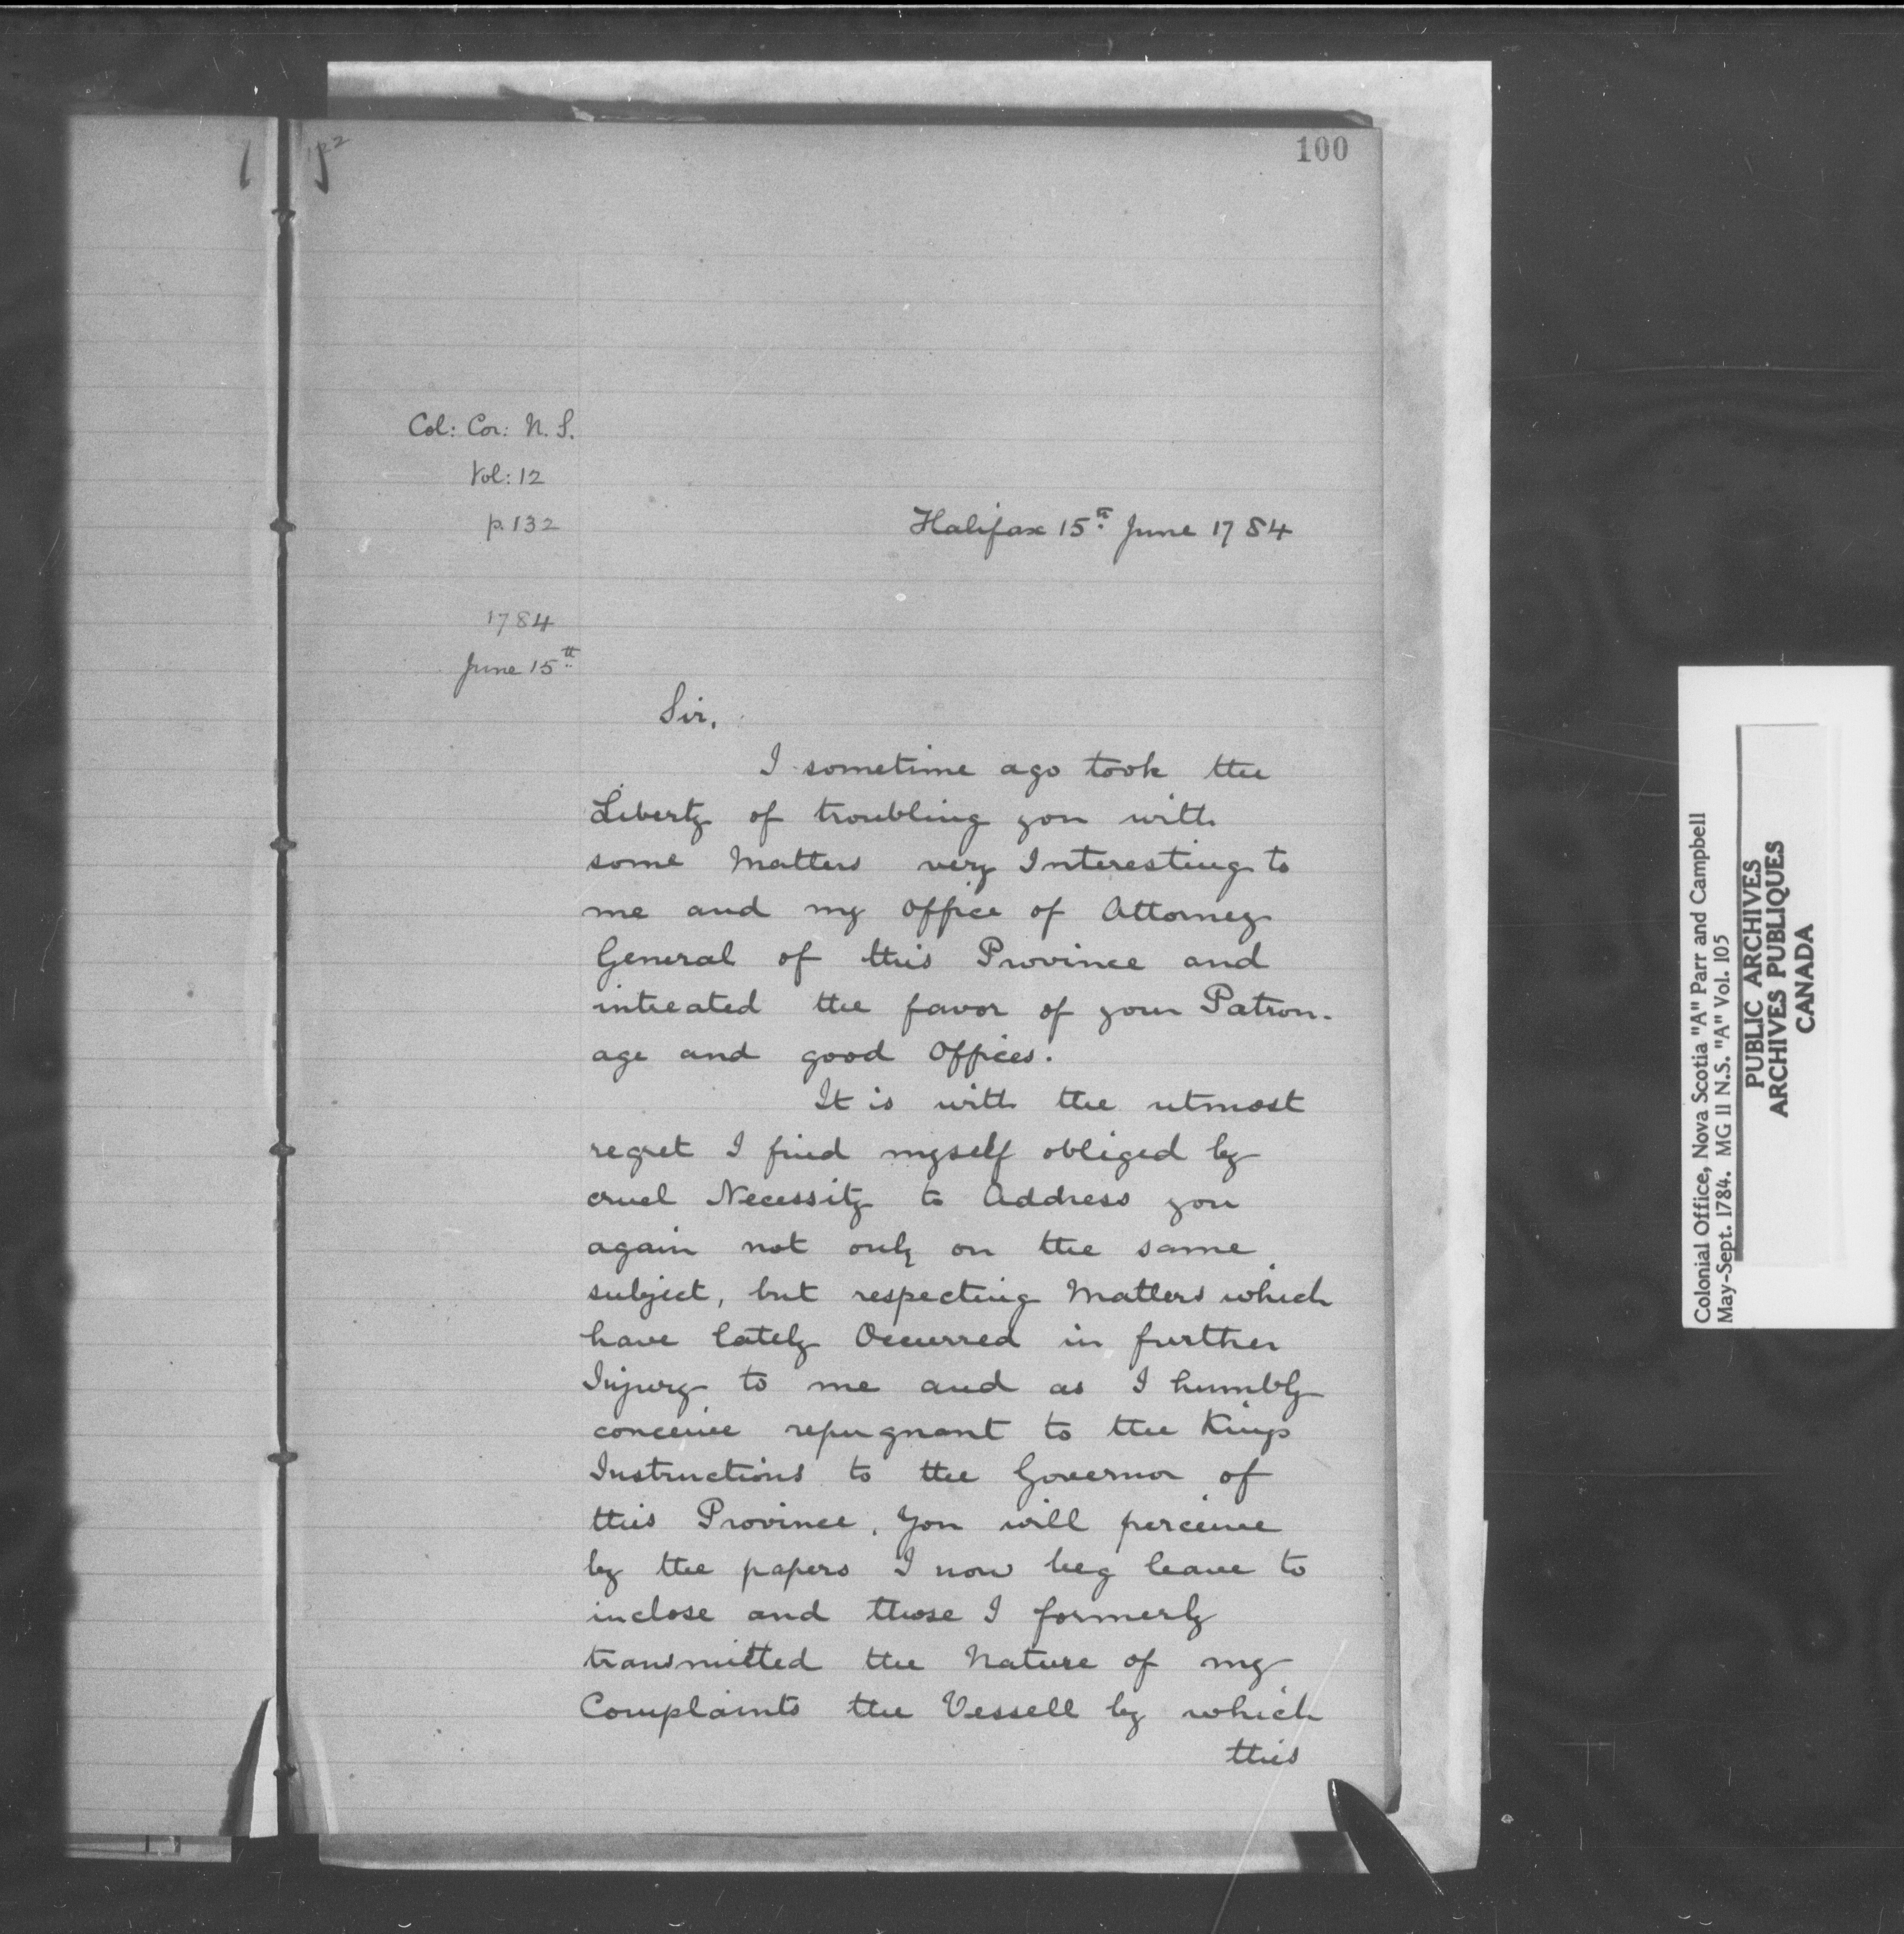 100
Col: Cor: N. S.
Vol: 12
p. 132
Halifax 15th June 1784
1784
June 15th
Sir,
I sometime ago took the
Liberty of troubling you with
some Matters very Interesting to
me and my Office of Attorney
General of this Province and
intreated the favor of your Patron-
age and good Offices.
It is with the utmost
regret I find myself obliged by
cruel Necessity to Address you
again not only on the same
subject, but respecting Matters which
have lately Occurred in further
Injury to me and as I humbly
conceive repugnant to the Kings
Instructions to the Governor of
this Province. You will perceive
by the papers I now beg leave to
inclose and those I formerly
transmitted the Nature of my
Complaints the Vessell by which
this
Colonial Office, Nova Scotia "A" Parr and Campbell
May-Sept. 1784. MG 11 N.S. "A" Vol. 105
PUBLIC ARCHIVES
ARCHIVES PUBLIQUES
CANADA